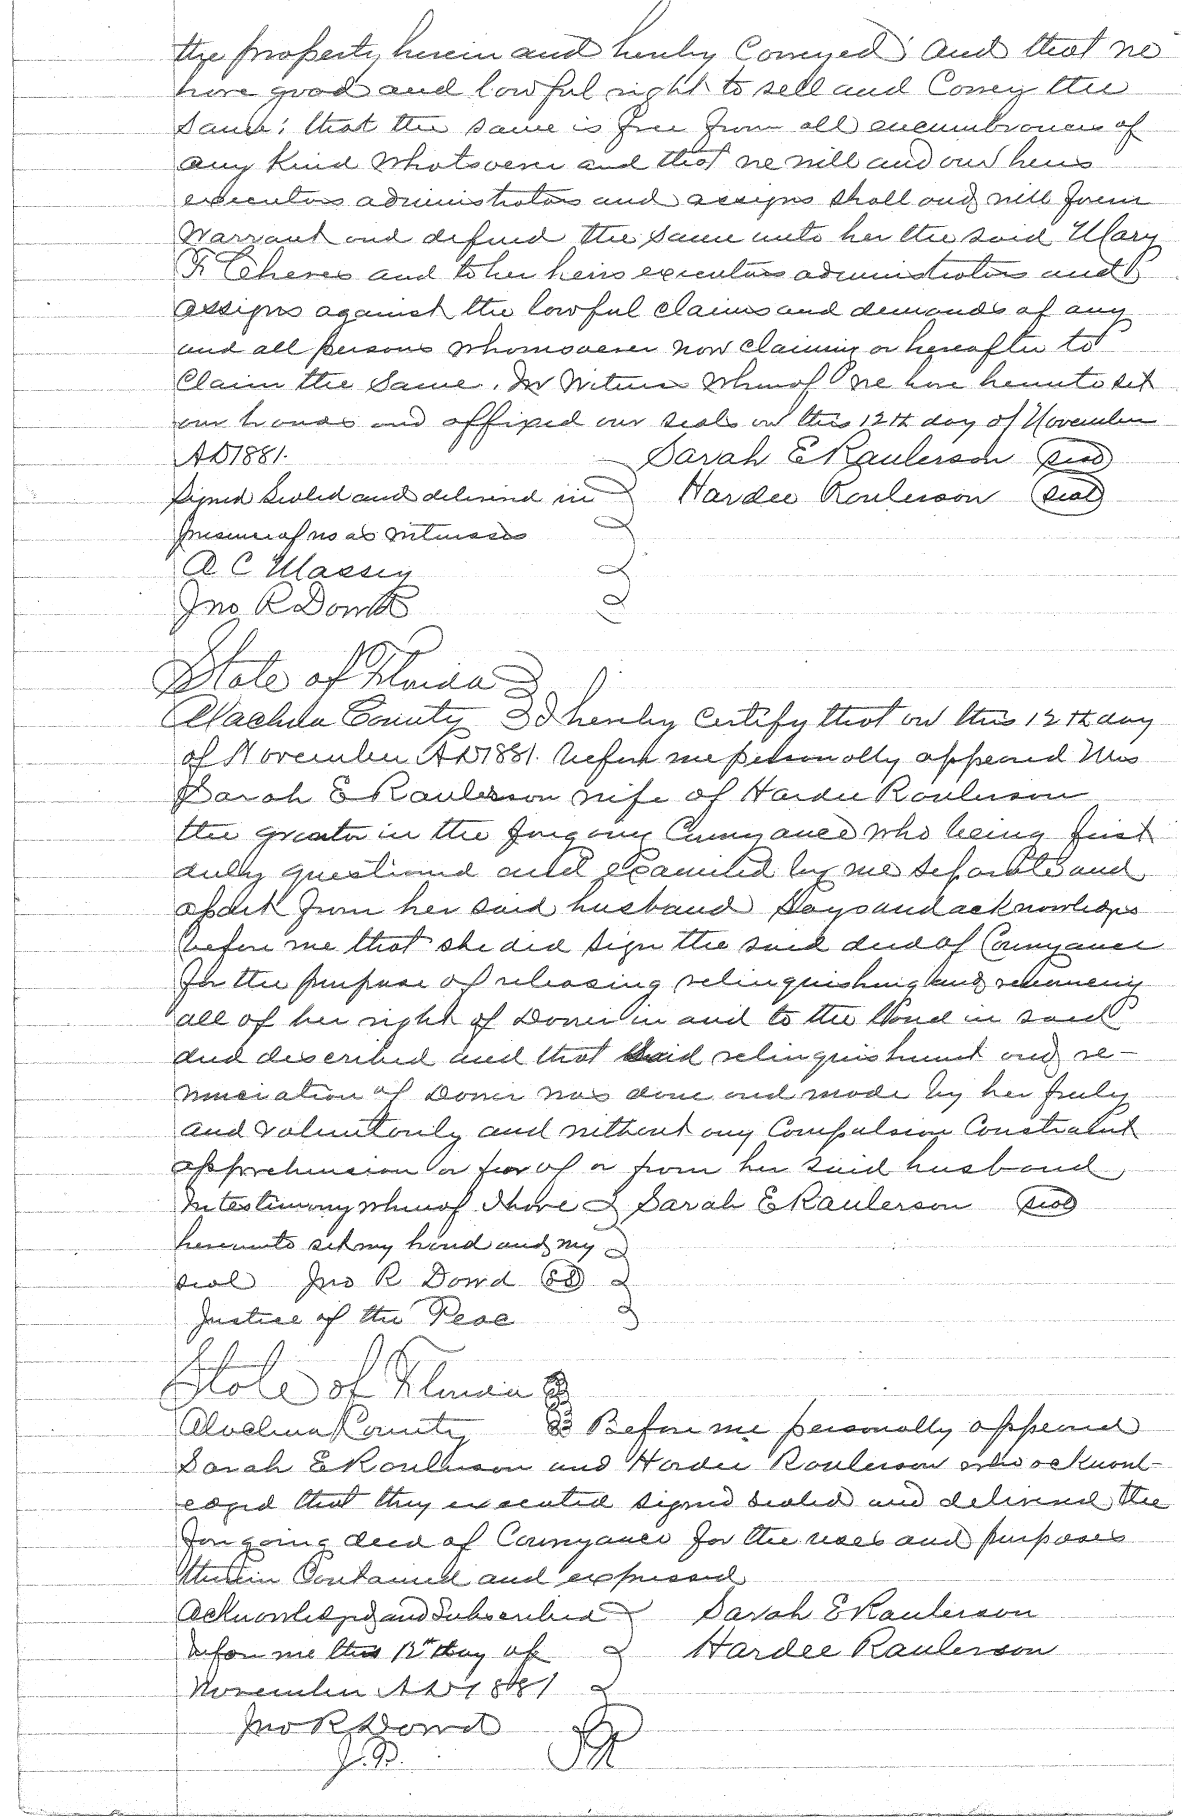 the property herein and hereby Conveyed and that we
have good and lawful right to sell and Convey the
Same; that the same is free from all encumbrances of
any kind whatsoever and that we will and our heirs
executors administrators and assigns shall and will forever
Warrant and defend the same unto her the said Mary
F Cheres and to her heirs executors administrators and
assigns against the lawful claims and demands of any
and all persons whomsoever now claiming or hereafter to
Claim the Same. In Witness Whereof We have hereunto set
our hands and affixed our seals on this 12th day of November
AD 1881. Sarah E Raulerson (seal)
Signed Sealed and delivered in Hardee Raulerson (seal)
presence of us as witnesses
A C Massey
Jno R Dowd
State of Florida
Alachua County I hereby certify that on this 12th day
of November AD 1881. before me personally appeared Mrs
Sarah E Raulerson wife of Hardee Raulerson
the grantor in the foregoing Conveyance who being first
duly questioned and examined by me separate and
apart from her said husband Says and acknowledges
before me that she did sign the said deed of Conveyance
for the purpose of releasing relinquishing and renouncing
all of her right of Dower in and to the land in said
deed described and that said relinquishment and re-
nunciation of Dower was done and made by her freely
and voluntarily and without any Compulsion Constraint
apprehension or fear of or from her said husband,
In testimony whereof I have Sarah E Raulerson (seal)
hereunto set my hand and my
seal Jno R Dowd
Justice of the Peac
State of Florida
Alachua County Before me personally appeared
Sarah E Raulerson and Hardee Raulerson who acknowl-
edged that they executed signed sealed and delivered the
foregoing deed of Conveyance for the uses and purposes
therein Contained and expressed
Acknowledged and Subscribed Sarah E Raulerson
before me this 12th day of Hardee Raulerson
November AD 1881
Jno R Dowd
J.P.